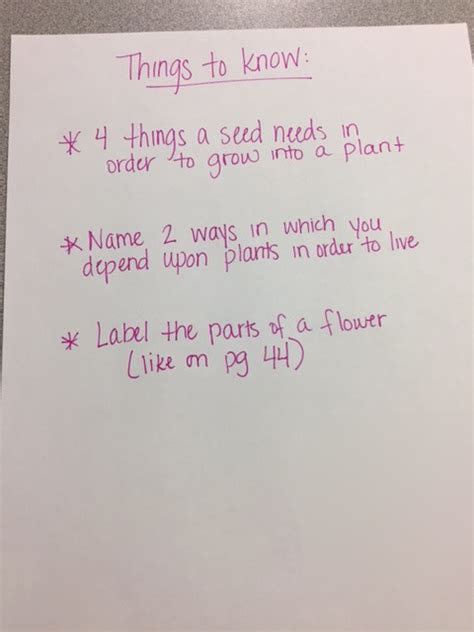 Things to know:
* 4 things a seed needs in
order to grow into a plant
* Name 2 ways in which you
depend upon plants in order to live
* Label the parts of a flower
(like on pg 44)